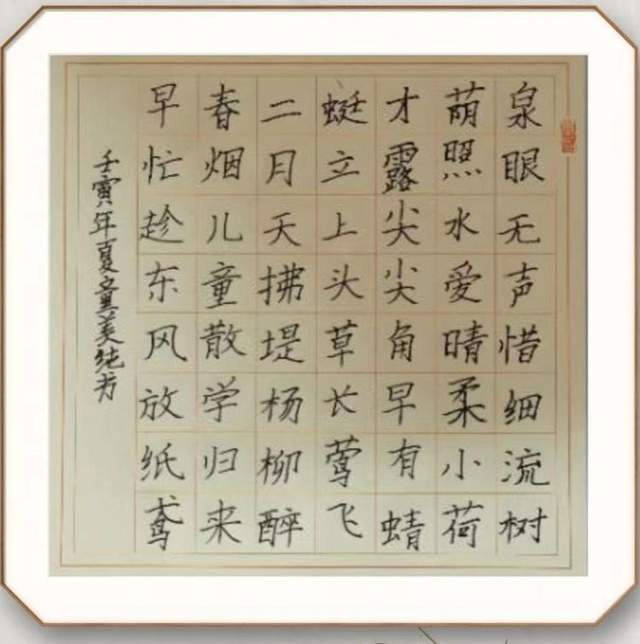 泉眼无声惜细流树
萌照水爱晴柔小荷
才露尖尖角早有蜻
蜓立上头草长莺飞
二月天拂堤杨柳醉
春烟儿童散学归来
早忙趁东风放纸鸢
壬寅年夏美纯书